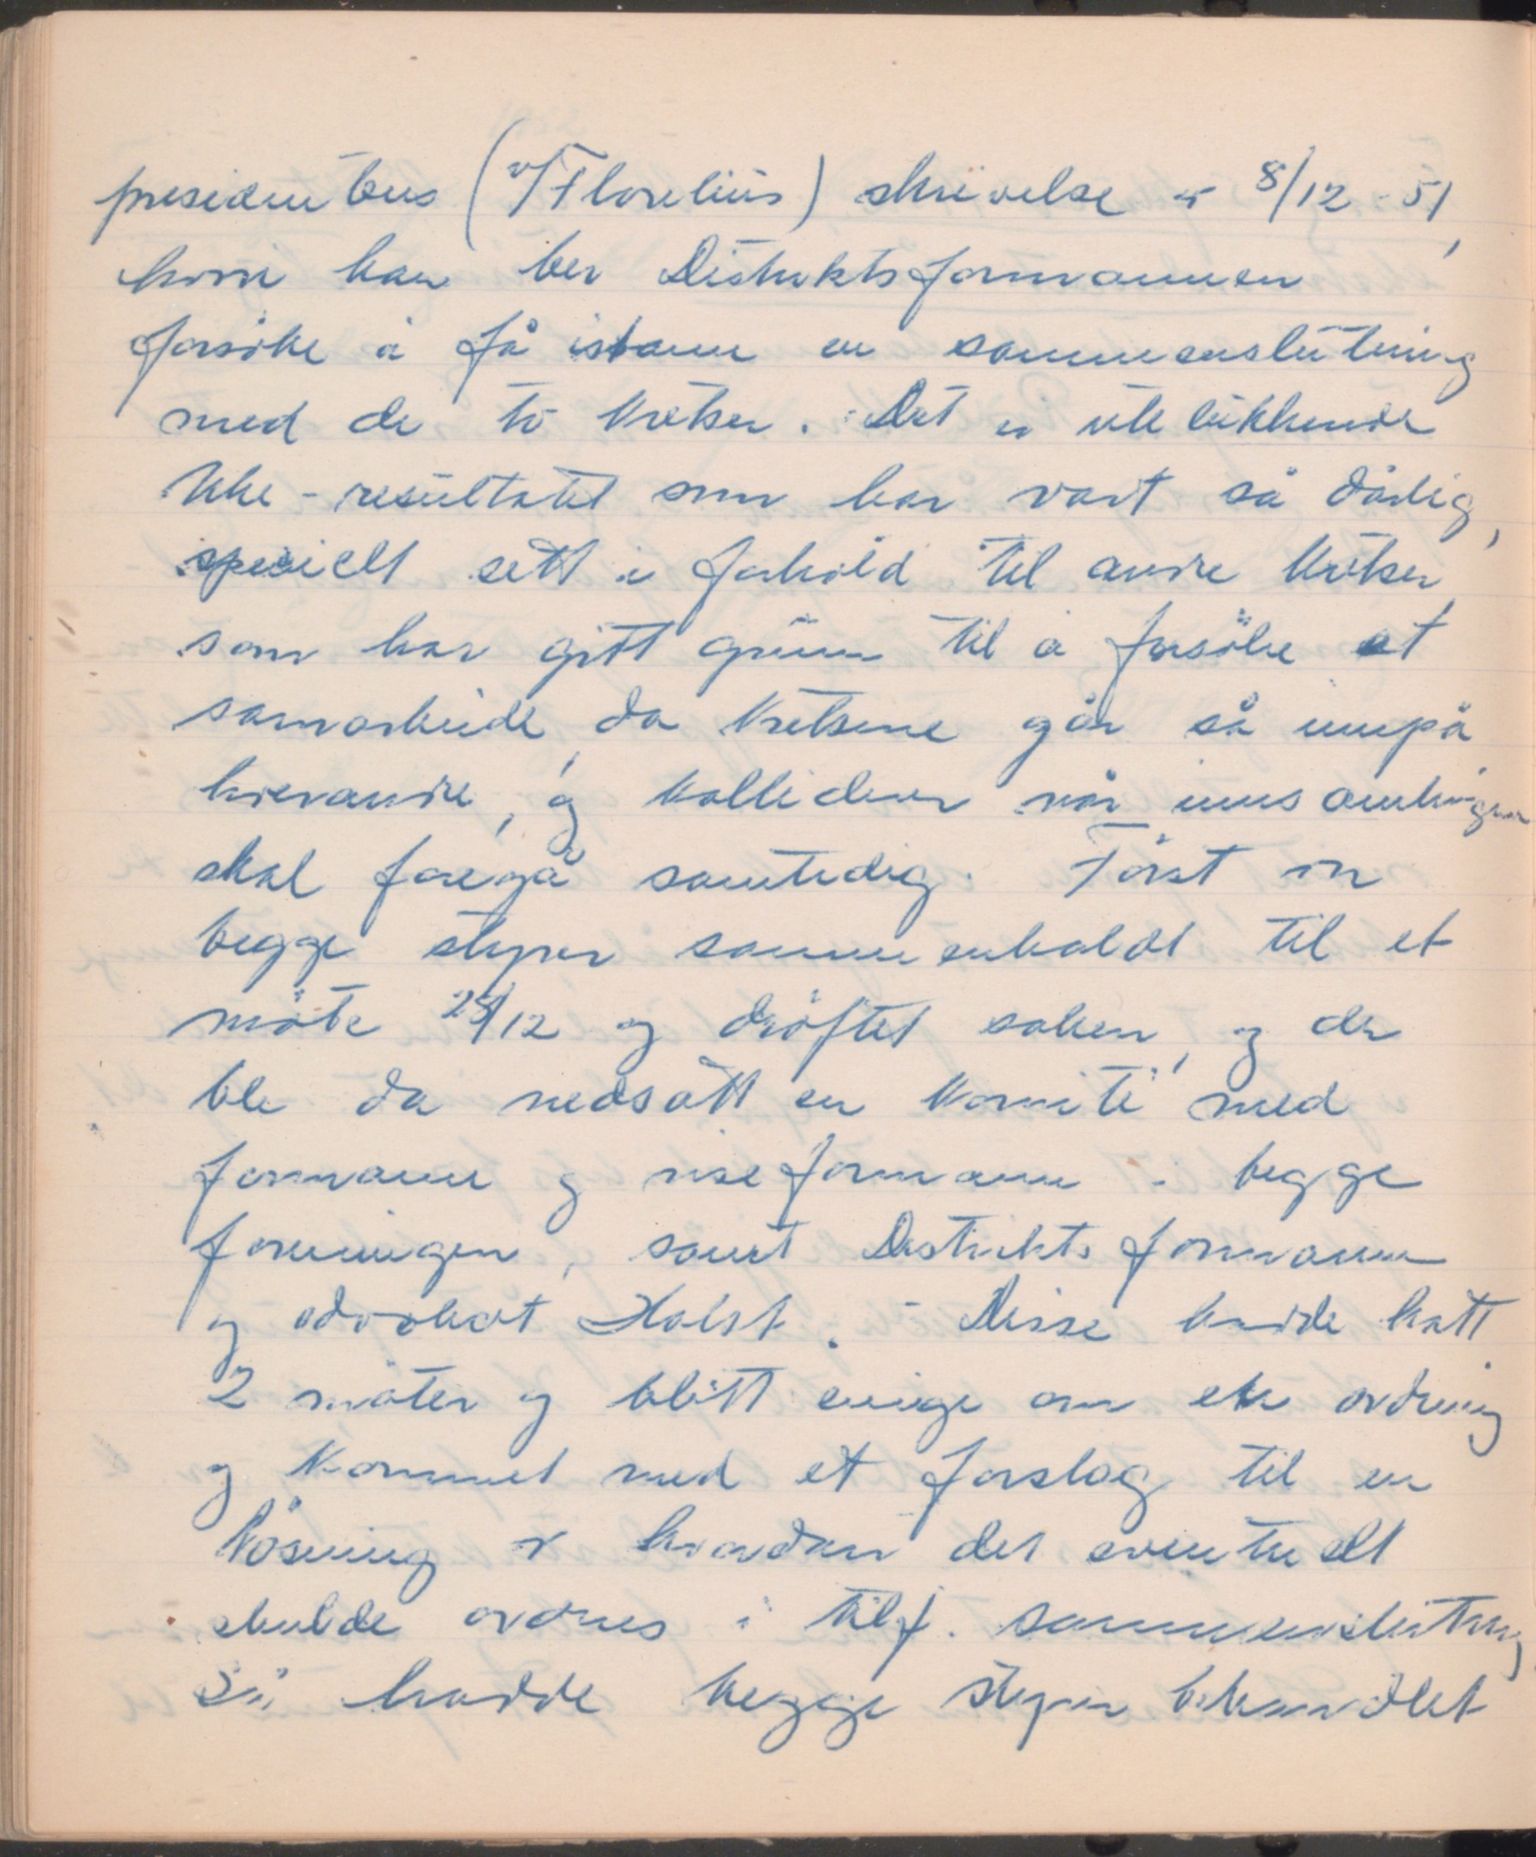 presidentens (v/Florelius) skrivelse av 8/12-51,
hvori han ber Distriktsformannen
forsöke å få istann en sammenslutning
med de to Kretser. Det er utelukkende
ikke - resultatet som har vært så dårlig,
spesielt sett i forhold til andre Kretser,
som har gitt grunn til å forsöke et
samarbeide, da Kretsene går så innpå
hverandre, og Kolliderer når innsamlinger
skal foregå samtidig. Först var
begge styrer sammenkaldt til et
möte 28/12 og dröftet saken, og der
ble da nedsatt en Komité med
formann og viseformann i begge
foreninger, samt Distriktsformann
og advokat Holst. - Disse hadde hatt
2 möter og blitt enige om en ordning
og Kommet med et forslag til en
lösning av hvordan det eventuelt
skulde ordnes i tilf. sammenslutning
Så hadde begge styrer behandlet